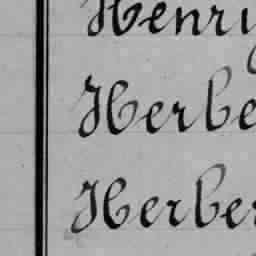 Henry
Herbe
Herber